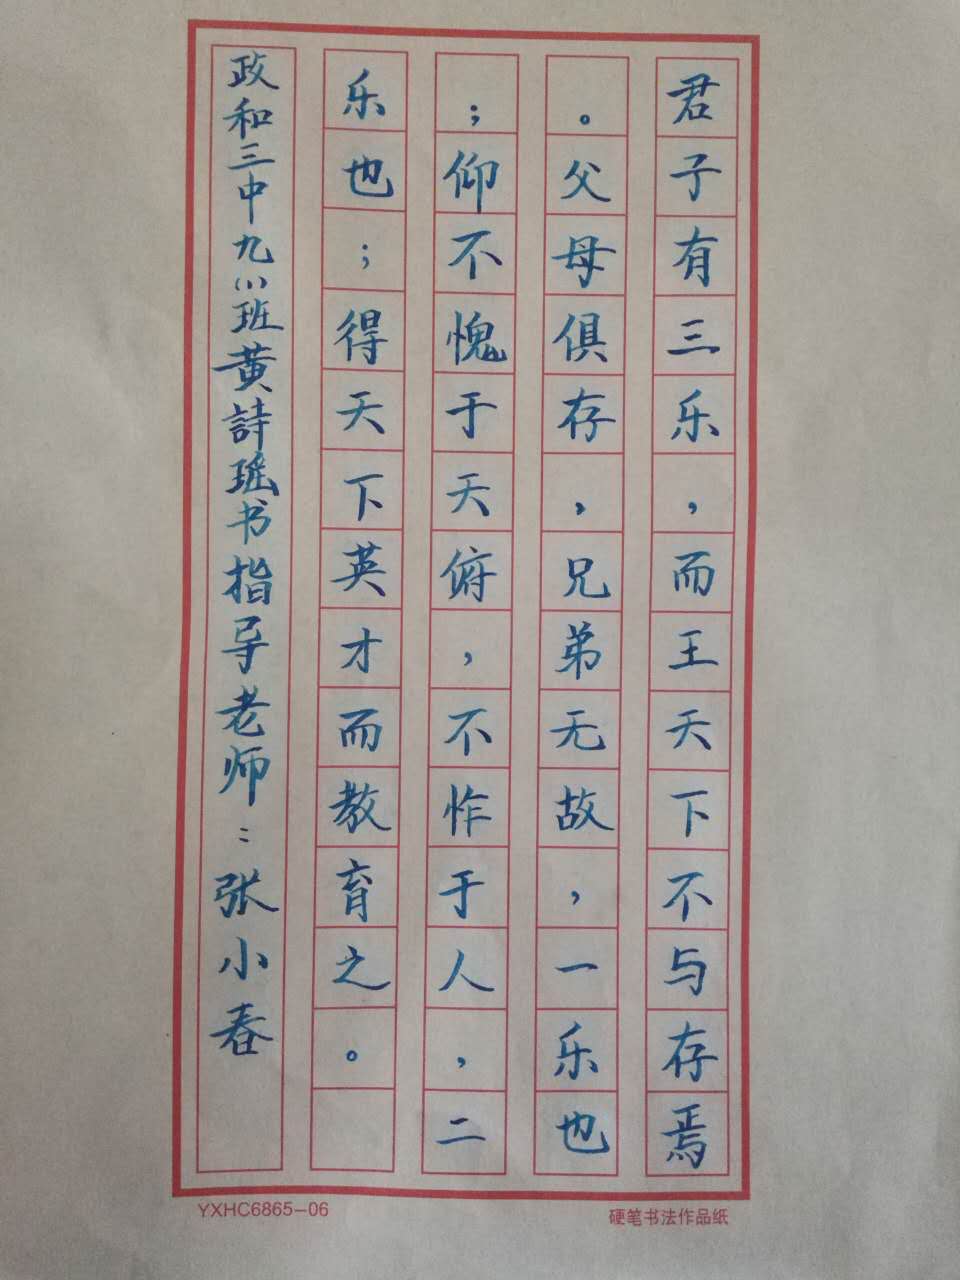 君子有三乐，而王天下不与存焉
。父母俱存，兄弟无故，一乐也
；仰不愧于天俯，不怍于人，二
乐也；得天下英才而教育之。
政和三中九（1）班黄詩瑶书指导老师：张小春
YXHC6865-06
硬笔书法作品纸